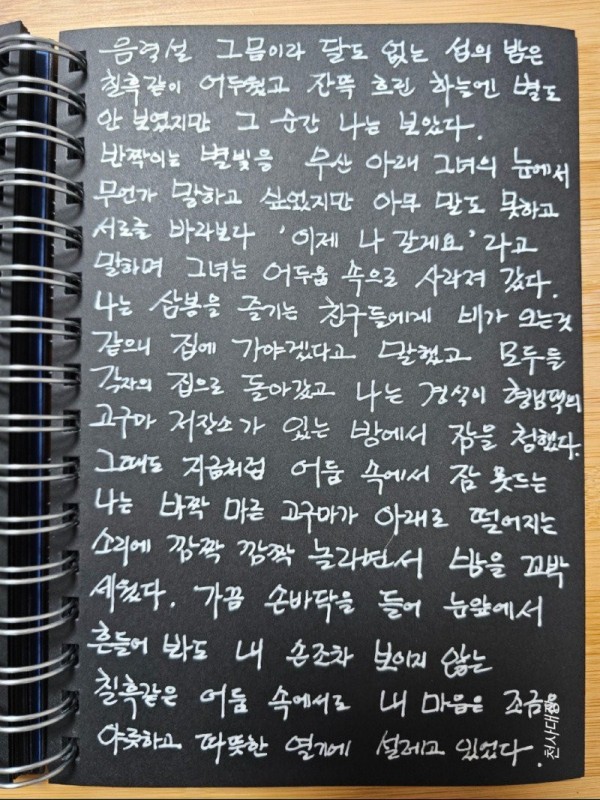 음력설 그믐이라 달도 없는 섬의 밤은
칠흑같이 어두웠고 잔뜩 흐린 하늘엔 별도
안 보였지만 그 순간 나는 보았다.
반짝이는 별빛을 우산 아래 그녀의 눈에서
무언가 말하고 싶었지만 아무 말도 못하고
서로를 바라보다 '이제 나 갈게요' 라고
말하며 그녀는 어두움 속으로 사라져 갔다.
나는 삼봉을 즐기는 친구들에게 비가 오는것
같으니 집에 가야겠다고 말했고 모두들
각자의 집으로 돌아갔고 나는 경식이 형님댁의
고구마 저장소가 있는 방에서 잠을 청했다.
그때도 지금처럼 어둠 속에서 잠 못드는
나는 바짝 마른 고구마가 아래로 떨어지는
소리에 깜짝 깜짝 놀라면서 밤을 꼬박
세웠다. 가끔 손바닥을 들어 눈앞에서
흔들어 봐도 내 손조차 보이지 않는
칠흑같은 어둠 속에서도 내 마음은 조금은
야릇하고 따뜻한 열기에 설레고 있었다.
천사대교